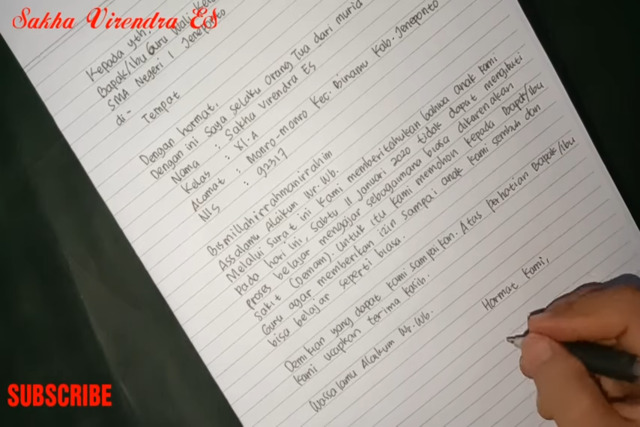 Sakha Virendra ES
Kepada yth.
Bapak/Ibu Guru Wali Kelas
SMA Negeri 1 Jeneponto
di-
Tempat
Dengan hormat,
Dengan ini saya selaku Orang Tua dari murid
Nama : Sakha Virendra ES
Kelas : XI.A
Alamat : Monro-monro Kec. Binamu Kab. Jeneponto
NIS : 99317
Bismillahirrahmanirrahim
Assalamu Alaikum Wr. Wb.
Melalui surat ini Kami memberitahukan bahwa anak kami
Pada hari ini, Sabtu 11 Januari 2020 tidak dapat mengikuti
proses belajar mengajar sebagaimana biasa dikarenakan
Sakit (Demam). Untuk itu kami memohon kepada Bapak/Ibu
Guru agar memberikan izin sampai anak kami sembuh dan
bisa belajar seperti biasa.
Demikian yang dapat kami sampaikan. Atas perhatian Bapak/Ibu
kami ucapkan terima kasih.
Wassalamu Alaikum Wr. Wb.
Hormat Kami,
SUBSCRIBE